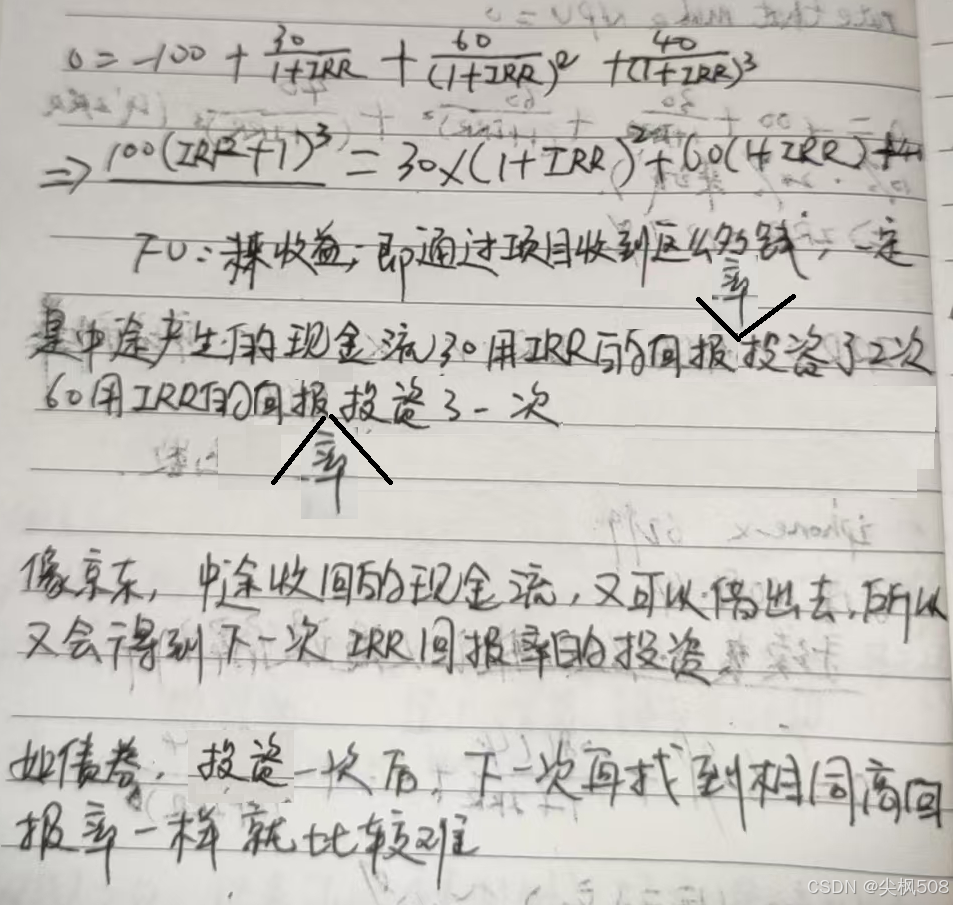 0 = -100 + 30/(1+IRR) + 60/(1+IRR)² + 40/(1+IRR)³
⇒ 100(IRR+1)³ = 30×(1+IRR)² + 60(1+IRR) +40
FV: 收益, 即通过项目收到这么多钱, 一定
是中途产生的现金流30用IRR的回报率投资了2次
60用IRR的回报率投资了一次
iphone x
像京东, 中途收回的现金流, 又可以借出去, 所以
又会得到下一次 IRR回报率的投资
如债券, 投资一次后, 下一次再找到相同高回
报率一样就比较难
CSDN @尖枫508